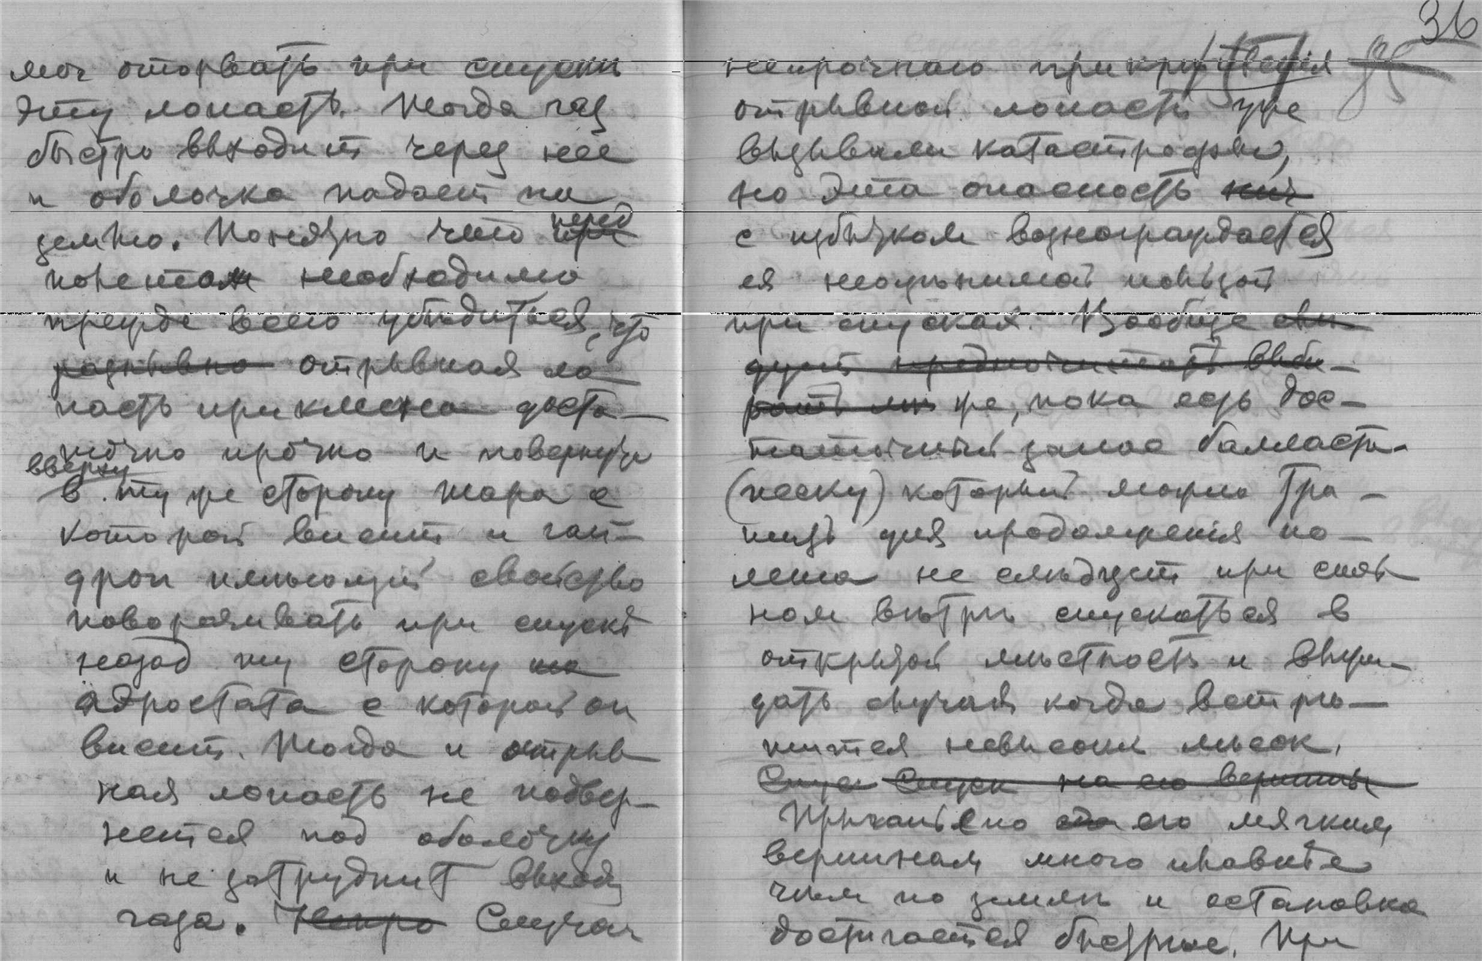 мог оторвать при спуске
эту лопасть. Тогда газ
быстро выходит через нее
и оболочка падает на
землю. Понятно что при перед
полетом необходимо
прежде всего убѣдиться, что
разрывно отрывная ло-
пасть приклеена доста-
точно прочно и повернута
вверху в ту же сторону шара с
которой висит и гай-
дроп имеющий свойство
поворачивать при спускѣ
назад ту сторону
аэростата с которой он
висит. Тогда и отрыв
ная лопасть не подвер-
нется под оболочку
и не затруднит выход
газа. Непро Случаи
36
85
непрочнаго прикрѣпленія
отрывной лопасти уже
вызывали катастрофы,
но эта опасность
с избытком вознаграждается
ея неоцѣнимой пользой
при спусках. Вообще
дует предпочитать выби-
рать же, пока есть дос-
таточный запас балласта
(песку) который можно тра-
тить для продолженія по-
лета не слѣдует при силь
ном вѣтрѣ спускаться в
открытой мѣстности и выжи-
дать случая когда встрѣ-
тится невысокий лѣсок.
Спуск Спуск на его вершины
Прикасаніе по его мягким
вершинам много
чѣм по землѣ и остановка
достигается быстрѣе. При